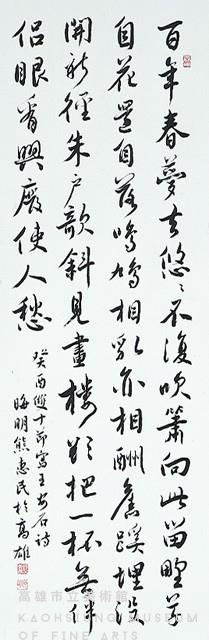 百年春夢去悠〻不復吹簫向此留野草
自花還自落鳴鳩相乳亦相酬舊蹊埋沒
開新徑朱戶欹斜見畫樓欲把一杯無伴
侶眼看興廢使人愁
癸酉雙十節寫王安石詩
晦明熊惠民於高雄
高雄市立美術館
KAOHSIUNG MUSEUM
OF FINE ARTS